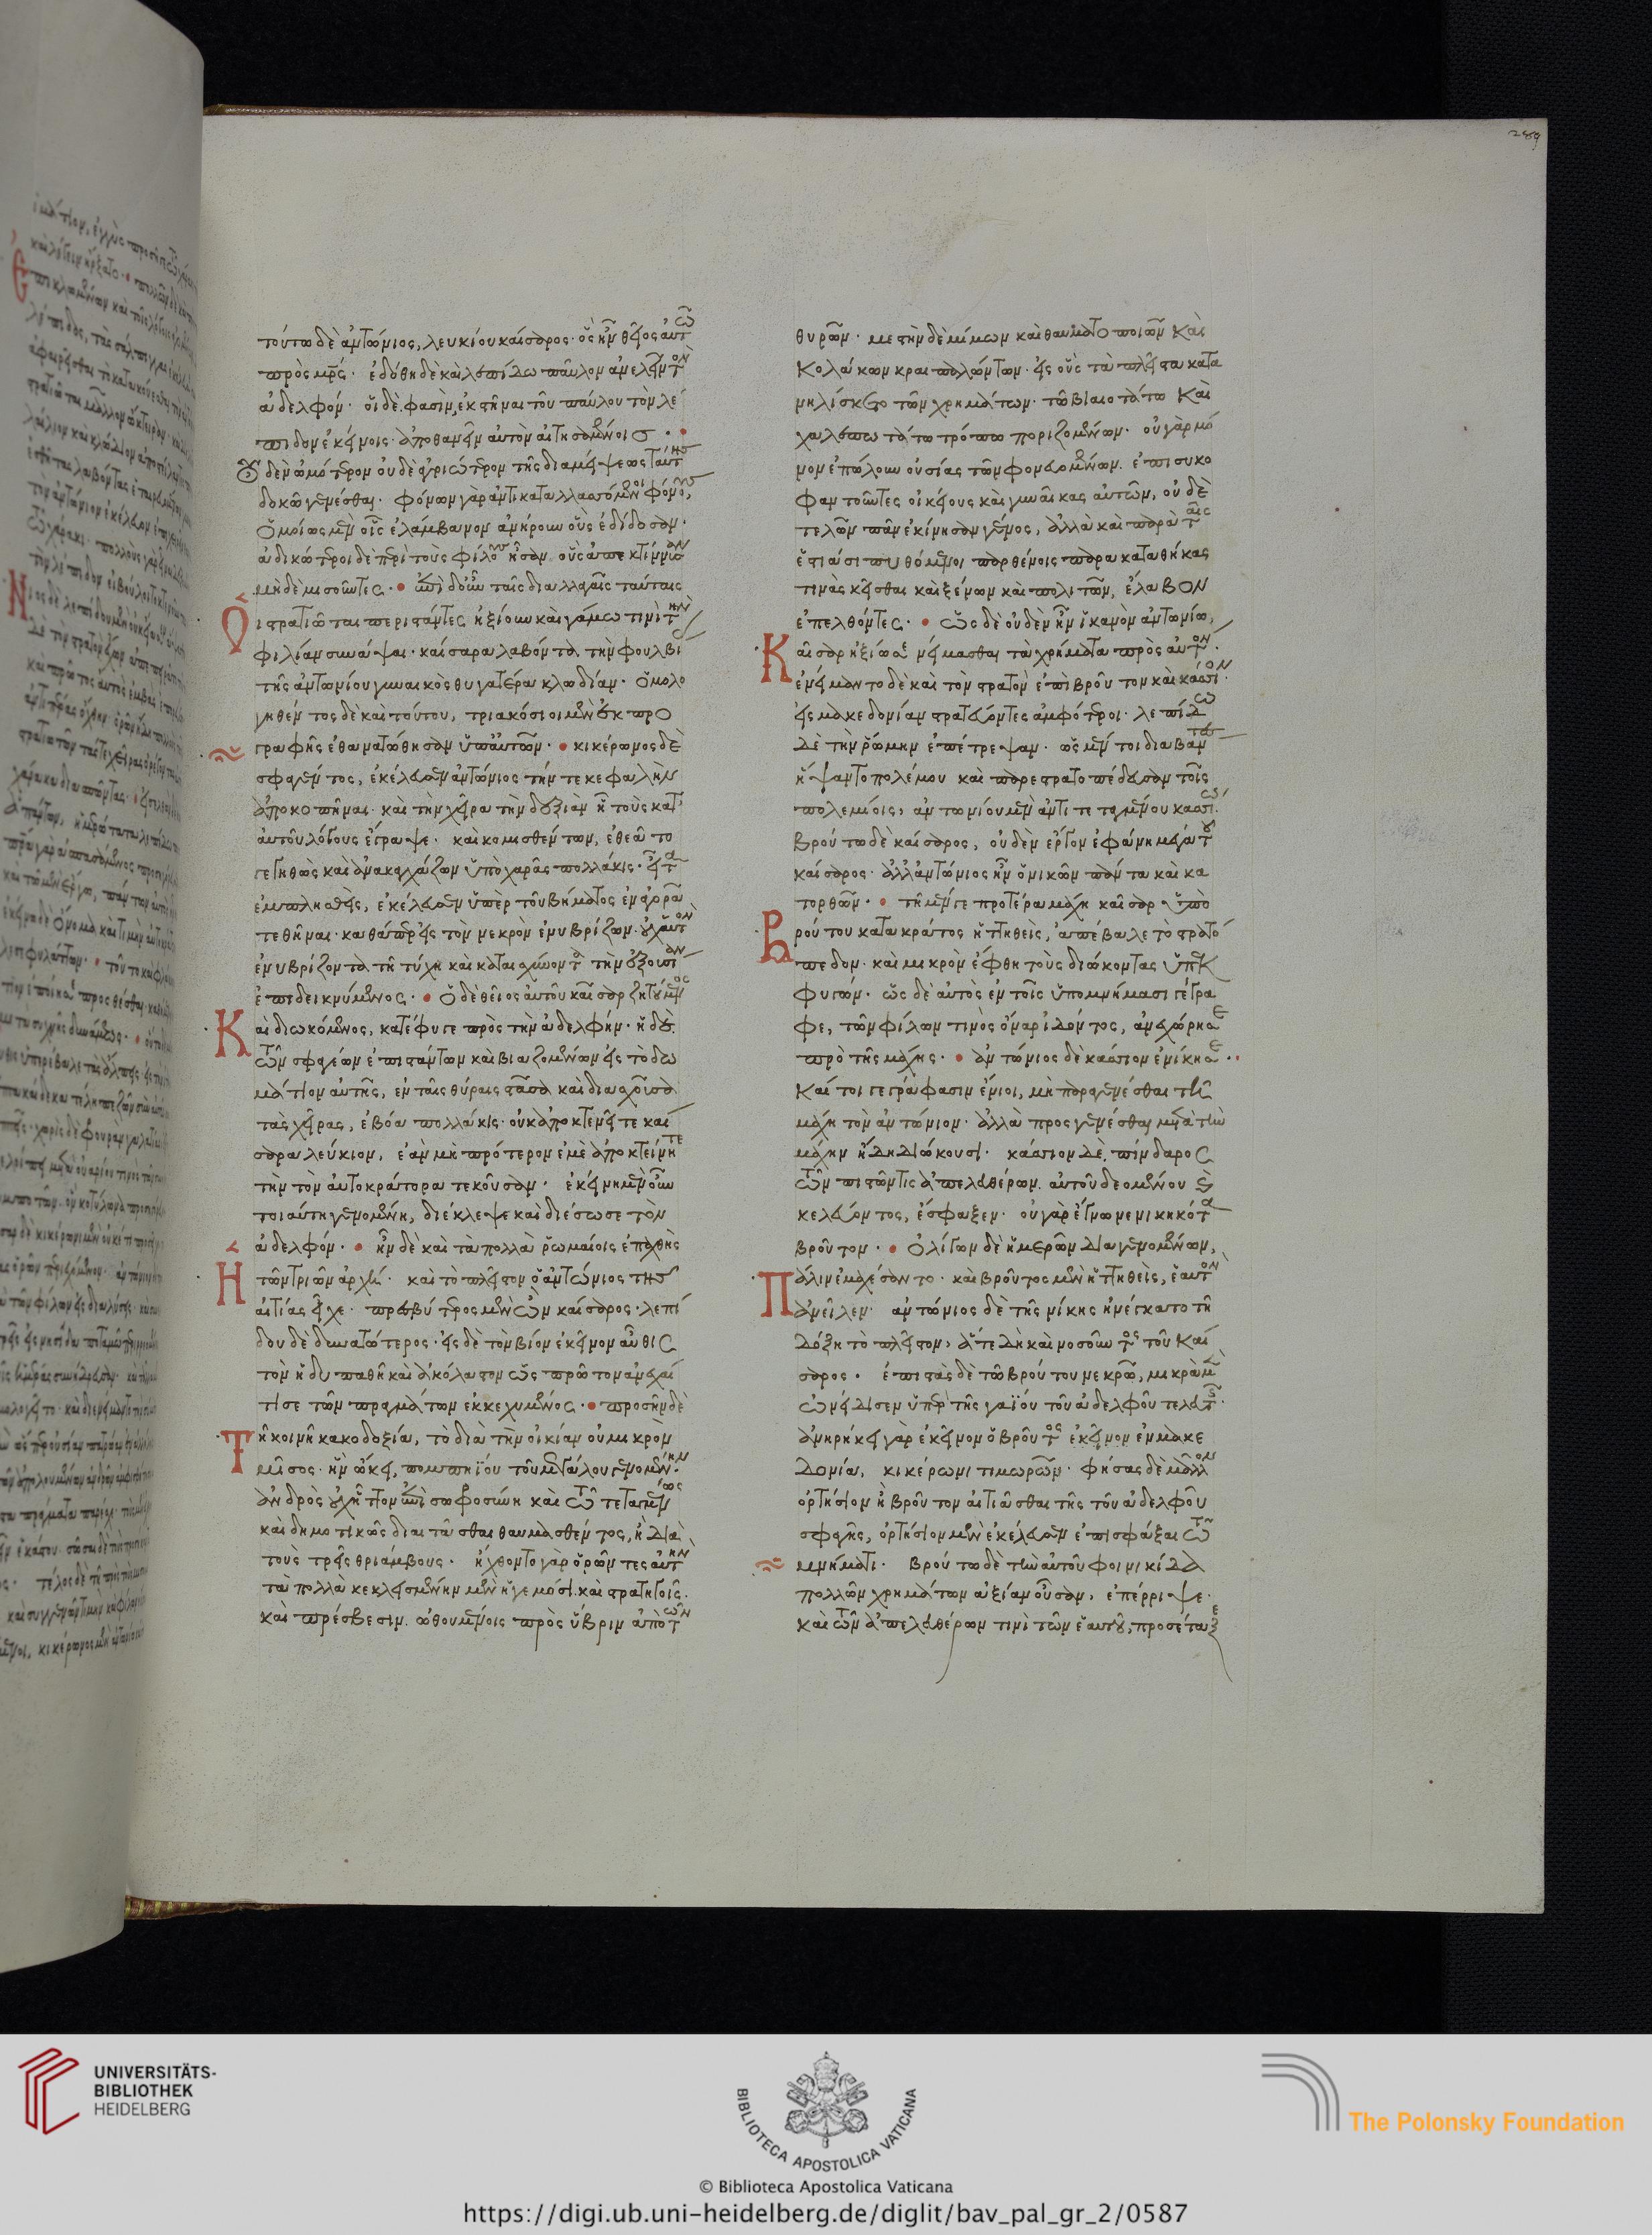 289
τούτω δὲ ἀντώνιος, λευκίου καίσαρος· ὃς ἦν θεῖος αὐτῶ
πρὸς μρς· ἐδόθη δὲ καὶ λεπίδω παῦλον ἀνελεῖν τὸν
ἀδελφόν· οἱ δέ φασιν, ἐκστῆναι τοῦ παύλου τὸν λέ
πιδον ἐκείνοις ἀποθανεῖν αὐτὸν αἰτησαμένοις·
οὐδὲν ὠμότερον οὐδὲ ἀγριώτερον τῆς διαμείψεως ταύτης
δοκῶ γενέσθαι. φόνων γὰρ ἀντικαταλλασσόμενοι φόνους,
ὁμοίως μὲν οἷς ἐλάμβανον ἀνήρουν οὓς ἐδίδοσαν·
ἀδικώτεροι δὲ περὶ τοὺς φίλους ἦσαν οὓς ἀπεκτίννυσαν
μηδὲ μισοῦντες· ἐπὶ δ' οὖν ταῖς διαλλαγαῖς ταύταις
Οἱ στρατιῶται περιστάντες ἠξίουν καὶ γάμω τινὶ τὴν
φιλίαν συνάψαι· καίσαρα λαβόντα τὴν φουλβί
της ἀντωνίου γυναικὸς θυγατέρα κλωδίαν· ὁμολο
γηθέντος δὲ καὶ τούτου, τριακόσιοι μὲν ἐκ προ
γραφῆς ἐθανατώθησαν ὑπ' αὐτῶν· κικέρωνος δὲ
σφαγέντος, ἐκέλευσεν ἀντώνιος τήν τε κεφαλὴν
ἀποκοπῆναι καὶ τὴν χεῖρα τὴν δεξιὰν ἧ τοὺς κατ'
αὐτοῦ λόγους ἔγραψε· καὶ κομισθέντων, ἐθεᾶτο
γεγηθὼς καὶ ἀνακαγχάζων ὑπὸ χαρᾶς πολλάκις· εἶτα
ἐμπλησθεὶς, ἐκέλευσεν ὑπὲρ τοῦ βήματος ἐν ἀγορᾶ
τεθῆναι· καθάπερ εἰς τὸν νεκρὸν ἐνυβρίζων· οὐχ αὑτὸν
ἐνυβρίζοντα τῆ τύχη καὶ καταισχύνοντα τὴν ἐξουσίαν
ἐπιδεικνύμενος· ὁ δὲ θεῖος αὐτοῦ καῖσαρ ζητούμενος
Καὶ διωκόμενος, κατέφυγε πρὸς τὴν ἀδελφήν· ἡ δὲ.
τῶν σφαγέων ἐπιστάντων καὶ βιαζομένων εἰς τὸ δω
μάτιον αὐτῆς, ἐν ταῖς θύραις στᾶσα καὶ διασχοῦσα
τὰς χεῖρας, ἐβόα πολλάκις· οὐκ ἀποκτενεῖτε καί
σαρα λεύκιον, ἐὰν μὴ πρότερον ἐμὲ ἀποκτείνητε
τὴν τὸν αὐτοκράτορα τεκοῦσαν· ἐκείνη μὲν οὖν
τοιαύτη γενομένη, διέκλεψε καὶ διέσωσε τὸν
ἀδελφόν· ἦν δὲ καὶ τὰ πολλὰ ῥωμαίοις ἐπαχθὴς
Ἡ τῶν τριῶν ἀρχή· καὶ τὸ πλεῖστον ὁ ἀντώνιος τῆς
αἰτίας εἶχε· πρεσβύτερος μὲν ὢν καίσαρος· λεπί
δου δὲ δυνατώτερος· εἰς δὲ τὸν βίον ἐκεῖνον αὖθις
τὸν ἡδυπαθῆ καὶ ἀκόλαστον ὡς πρῶτον ἀνεχαί
τισε τῶν πραγμάτων ἐκκεχυμένος· προσῆν δὲ
Τῆ κοινῆ κακοδοξία, τὸ διὰ τὴν οἰκίαν οὐ μικρὸν
μῖσος· ἣν ὤκει, πομπηΐου τοῦ μεγάλου γενομένην·
ἀνδρὸς οὐχ ἧττον ἐπὶ σωφροσύνη καὶ τῶ τεταγμένως
καὶ δημοτικῶς διαιτᾶσθαι θαυμασθέντος, ἢ διὰ
τοὺς τρεῖς θριάμβους· ἤχθοντο γὰρ ὁρῶντες αὐτὴν
τὰ πολλὰ κεκλεισμένην μὲν ἡγεμόσι καὶ στρατηγοῖς·
καὶ πρέσβεσιν ὠθουμένοις πρὸς ὕβριν ἀπὸ τῶν
θυρῶν· μεστὴν δὲ μίμων καὶ θαυματοποιῶν καὶ
κολάκων κραιπαλώντων· εἰς οὓς τὰ πλεῖστα κατα
νηλίσκετο τῶν χρημάτων· τῶ βιαιοτάτω καὶ
χαλεπωτάτω τρόπω ποριζομένων· οὐ γὰρ μό
νον ἐπώλουν οὐσίας τῶν φονευομένων. ἐπισυκο
φαντοῦντες οἰκείους καὶ γυναῖκας αὐτῶν, οὐδὲ
τελῶν πᾶν ἐκίνησαν γένος, ἀλλὰ καὶ παρὰ ταῖς
ἑστιάσι πυθόμενοι παρθένοις παρακαταθήκας
τινὰς κεῖσθαι καὶ ξένων καὶ πολιτῶν, ἔλαβον
ἐπελθόντες· ὡς δὲ οὐδὲν ἦν ἱκανὸν ἀντωνίω,
Καῖσαρ ἠξίωσε νείμασθαι τὰ χρήματα πρὸς αὐτόν·
ἐνείμαντο δὲ καὶ τὸν στρατὸν ἐπὶ βροῦτον καὶ κάσσιον·
εἰς μακεδονίαν στρατεύοντες ἀμφότεροι· λεπίδω
δὲ τὴν ῥώμην ἐπέτρεψαν· ὡς μέντοι διαβάντες
ἥψαντο πολέμου καὶ παρεστρατοπέδευσαν τοῖς
πολεμίοις, ἀντωνίου μὲν ἀντιτεταγμένου κασσίω·
βρούτω δὲ καίσαρος, οὐδὲν ἔργον ἐφάνη μέγα τοῦ
καίσαρος· ἀλλ' ἀντώνιος ἦν ὁ νικῶν πάντα καὶ κα
τορθῶν· τῆ μέν γε προτέρα μάχη καῖσαρ ὑπὸ
Βρούτου κατακράτος ἡττηθεὶς, ἀπέβαλε τὸ στρατό
πεδον· καὶ μικρὸν ἔφθη τοὺς διώκοντας ὑπεκ
φυγών· ὡς δὲ αὐτὸς ἐν τοῖς ὑπομνήμασι γέγρα
φε, τῶν φίλων τινὸς ὄναρ ἰδόντος, ἀνεχώρησε
πρὸ τῆς μάχης· ἀντώνιος δὲ κάσσιον ἐνίκησε··
καί τοι γεγράφασιν ἔνιοι, μὴ παραγενέσθαι τῆ
μάχη τὸν ἀντώνιον· ἀλλὰ προσγενέσθαι μετὰ τὴν
μάχην ἤδη διώκουσι· κάσσιον δὲ, πίνδαρος
τῶν πιστῶν τις ἀπελευθέρων, αὐτοῦ δεομένου καὶ
κελεύοντος, ἔσφαξεν· οὐ γὰρ ἔγνω νενικηκότα
βροῦτον· Ὀλίγων δὲ ἡμερῶν διαγενομένων,
Πάλιν ἐμαχέσαντο· καὶ βροῦτος μὲν ἡττηθεὶς, ἑαυτὸν
ἀνεῖλεν· ἀντώνιος δὲ τῆς νίκης ἠνέγκατο τῆ
δόξη τὸ πλεῖστον, ἅτε δὴ καὶ νοσοῦντος τοῦ καί
σαρος· ἐπιστὰς δὲ τῶ βρούτου νεκρῶ, μικρὰ μὲν
ὠνείδισεν ὑπὲρ τῆς γαΐου τοῦ ἀδελφοῦ τελευτῆς·
ἀνηρήκει γὰρ ἐκεῖνον ὁ βροῦτος ἐκεῖνον ἐν μακε
δονία, κικέρωνι τιμωρῶν· φήσας δὲ μᾶλλον
ὁρτήσιον ἢ βροῦτον αἰτιᾶσθαι τῆς τοῦ ἀδελφοῦ
σφαγῆς, ὁρτήσιον μὲν ἐκέλευσεν ἐπισφάξαι τῶ
μνήματι· βρούτω δὲ τὴν αὐτοῦ φοινικίδα
πολλῶν χρημάτων ἀξίαν οὖσαν, ἐπέρριψε·
καὶ τῶν ἀπελευθέρων τινὶ τῶν ἑαυτοῦ, προσέταξε
UNIVERSITÄTS-
BIBLIOTHEK
HEIDELBERG
BIBLIOTECA APOSTOLICA VATICANA
The Polonsky Foundation
© Biblioteca Apostolica Vaticana
https://digi.ub.uni-heidelberg.de/diglit/bav_pal_gr_2/0587